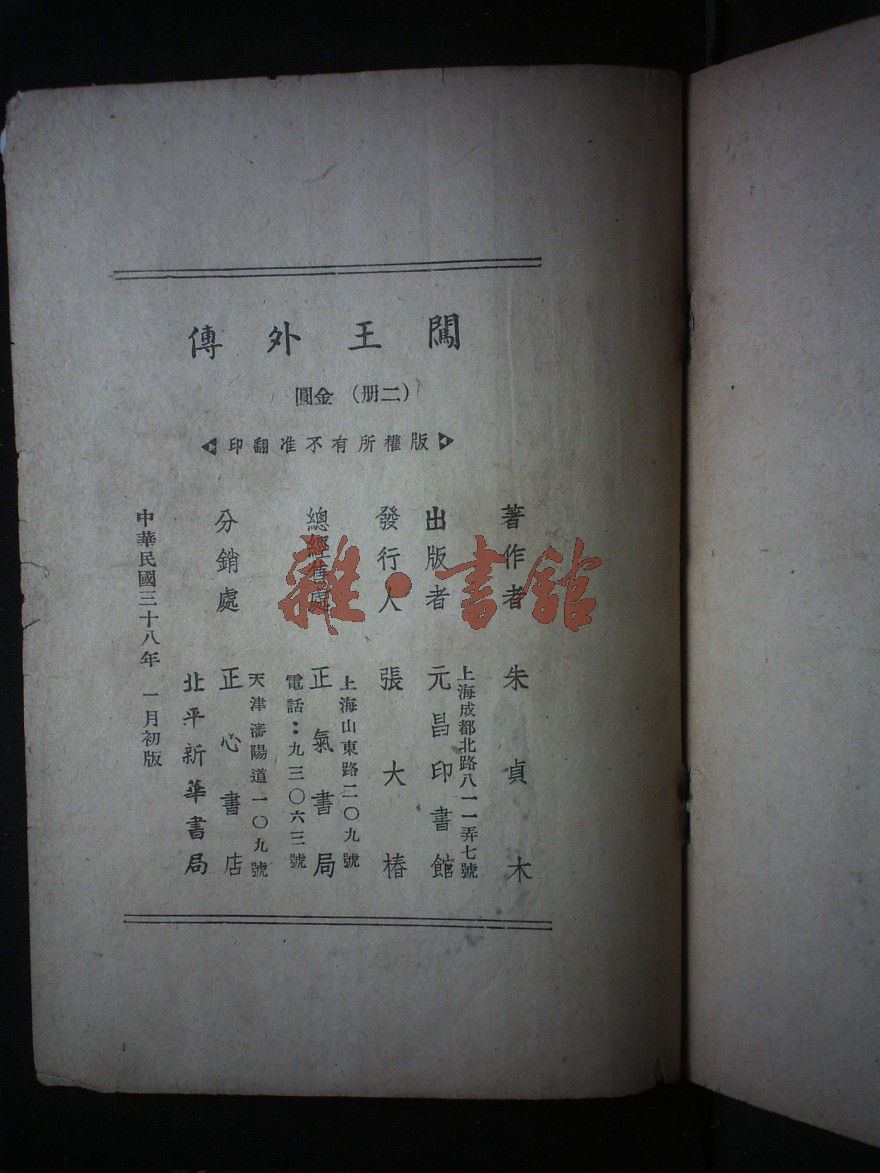 闖王外傳
（二册）金圓
版權所有不准翻印
著作者 朱貞木
出版者 元昌印書館
上海成都北路八一一弄七號
發行人 張大椿
總經售處 正氣書局
上海山東路二〇九號
電話：九三〇六三號
分銷處 正心書店
天津瀋陽道一〇九號
北平新華書局
中華民國三十八年一月初版
雜·書館